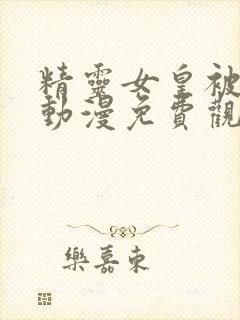 精靈女皇被
動漫免費觀
樂嘉東